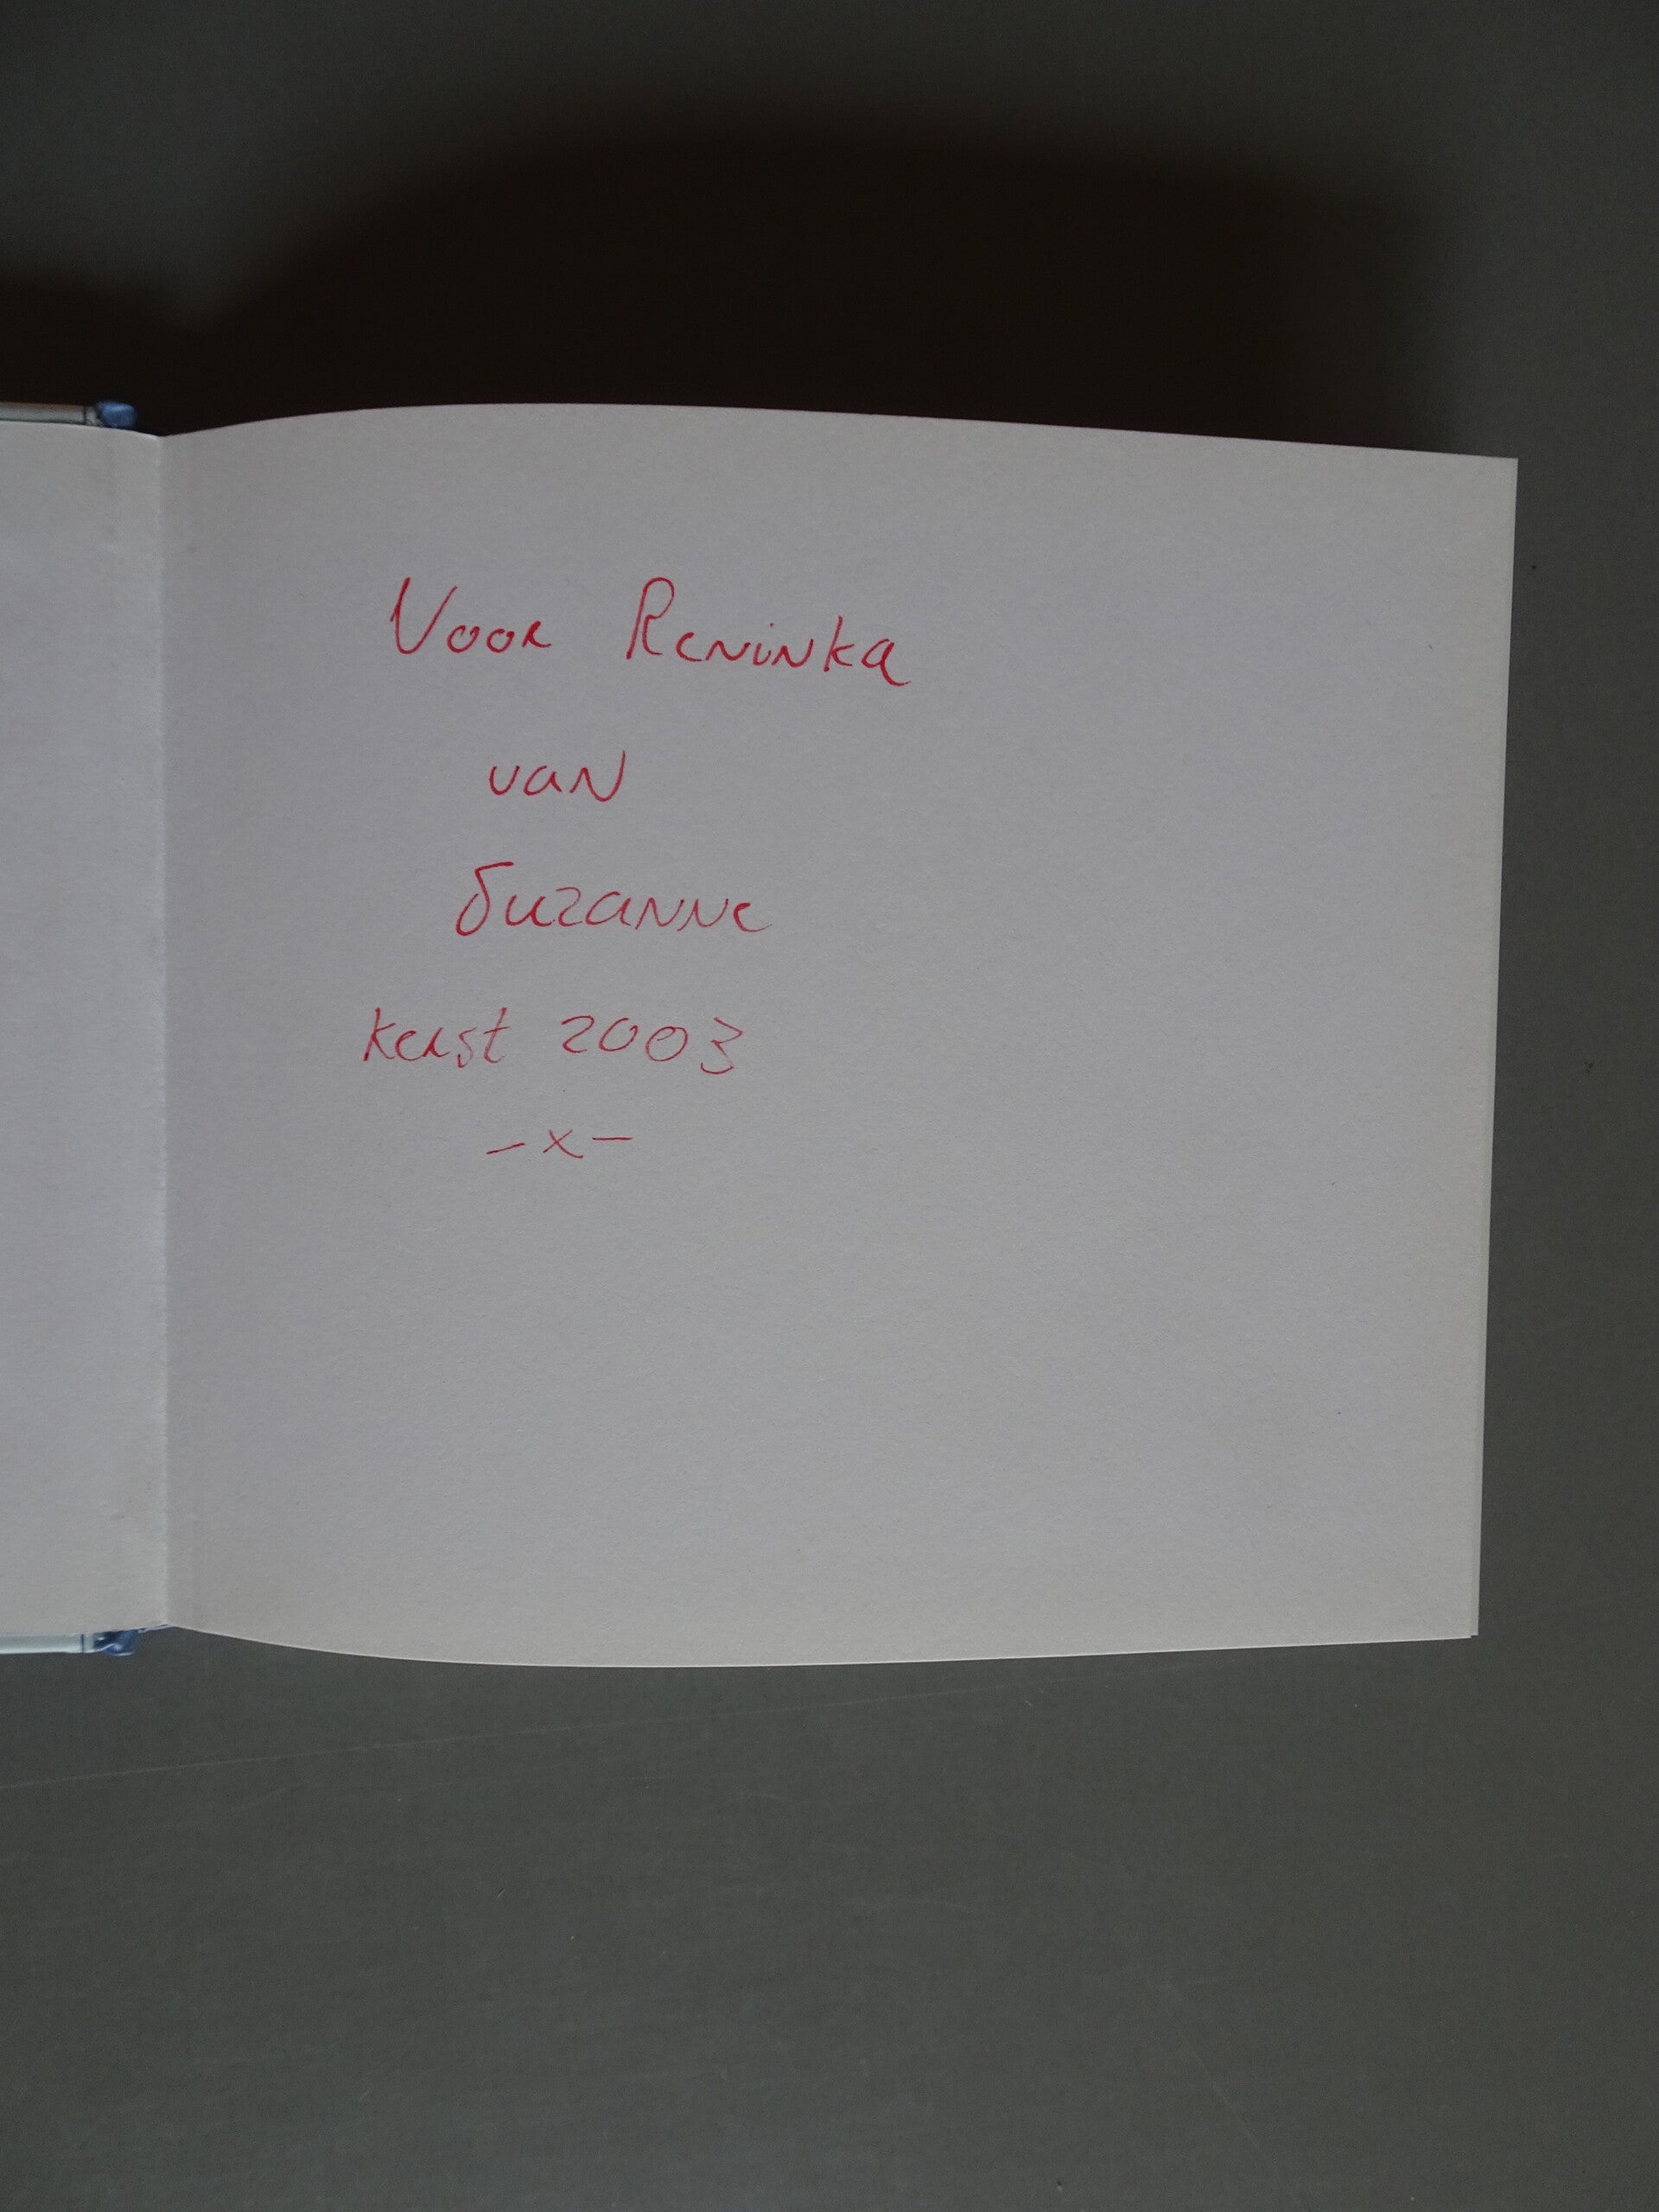 Voor Reninka
van
Suzanne
kerst 2003
-x-